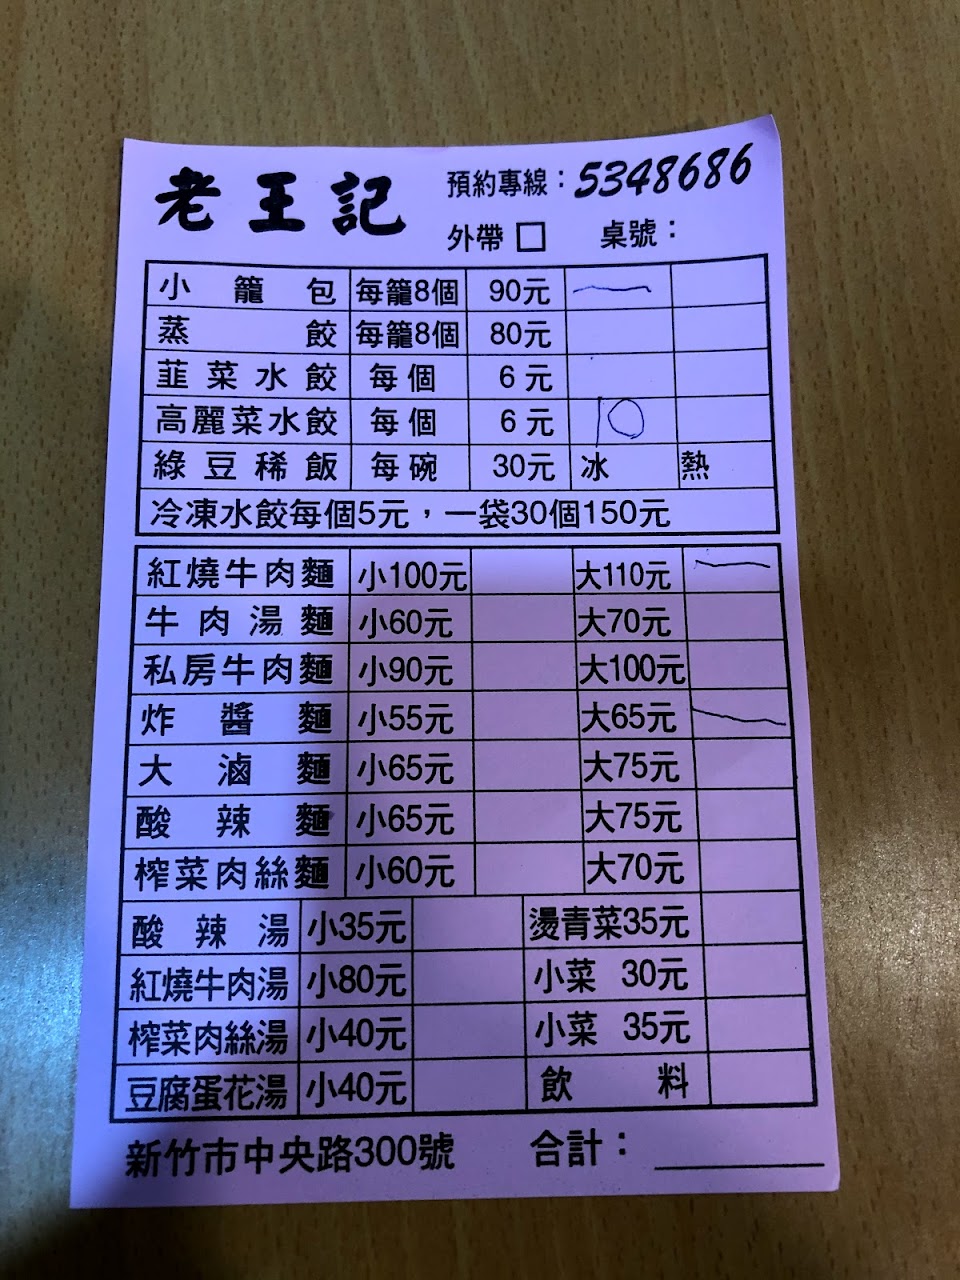 老王記 預約專線：5348686
外帶□ 桌號：
小籠包 每籠8個 90元 一
蒸餃 每籠8個 80元
韮菜水餃 每個 6元
高麗菜水餃 每個 6元 10
綠豆稀飯 每碗 30元 冰 熱
冷凍水餃每個5元，一袋30個150元
紅燒牛肉麵 小100元 大110元 一
牛肉湯麵 小60元 大70元
私房牛肉麵 小90元 大100元
炸醬麵 小55元 大65元 一
大滷麵 小65元 大75元
酸辣麵 小65元 大75元
榨菜肉絲麵 小60元 大70元
酸辣湯 小35元 燙青菜35元
紅燒牛肉湯 小80元 小菜 30元
榨菜肉絲湯 小40元 小菜 35元
豆腐蛋花湯 小40元 飲料
新竹市中央路300號 合計：